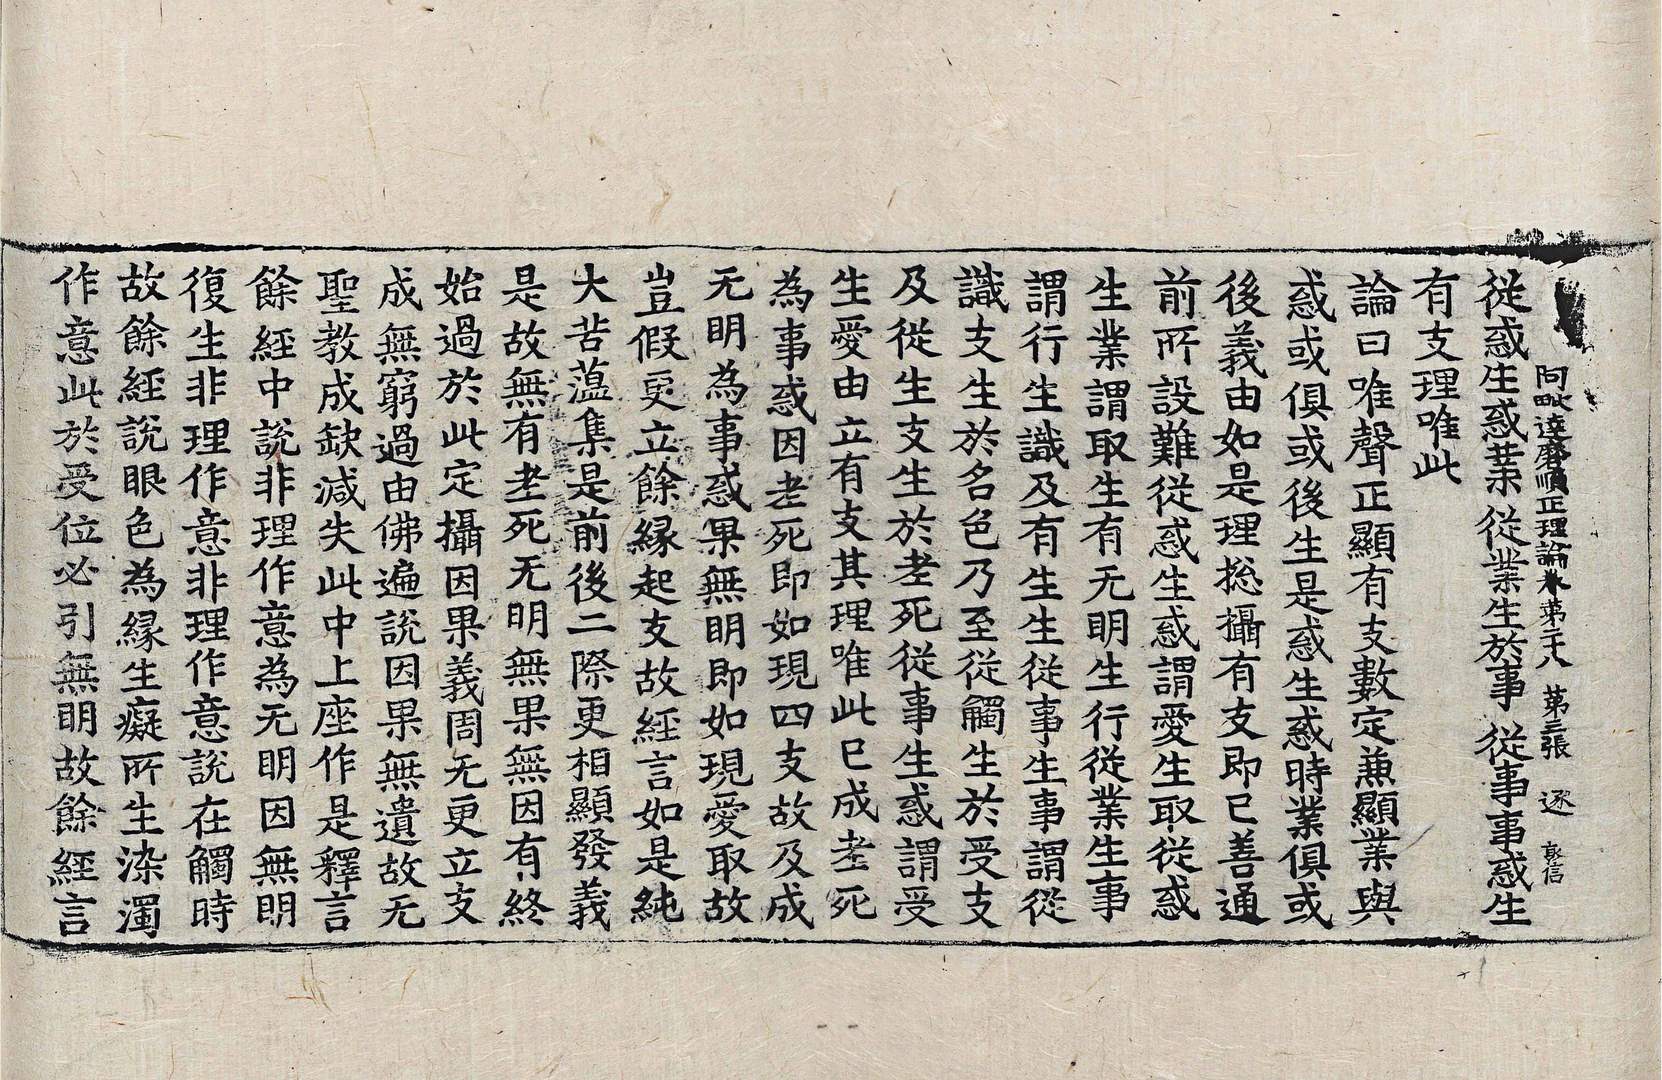 阿毗達磨順正理論卷第二十八 第三張 逐
從惑生惑業從業生於事從事事惑生
有支理唯此
論曰唯聲正顯有支數定兼顯業與
惑或俱或後生是惑生惑時業俱或
後義由如是理揔攝有支即已善通
前所設難從惑生惑謂愛生取從惑
生業謂取生有无明生行從業生事
謂行生識及有生生從事生事謂從
識支生於名色乃至從觸生於受支
及從生支生於老死從事生惑謂受
生愛由立有支其理唯此已成老死
為事惑因老死即如現四支故及成
无明為事惑果無明即如現愛取故
豈假更立餘緣起支故經言如是純
大苦蕰集是前後二際更相顯發義
是故無有老死无明無果無因有終
始過於此定攝因果義周无更立支
成無窮過由佛遍說因果無遺故无
聖教成缺減失此中上座作是釋言
餘經中說非理作意為无明因無明
復生非理作意非理作意說在觸時
故餘經說眼色為緣生癡所生染濁
作意此於受位必引無明故餘經言